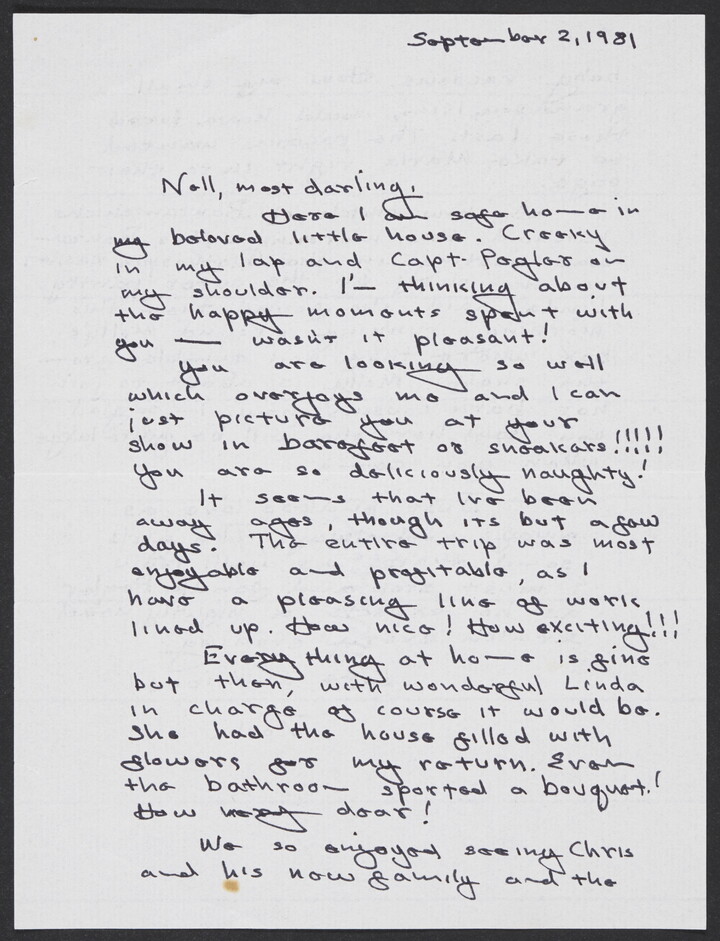 September 2, 1981
Nell, most darling,
Here I am safe home in
my beloved little house. Creeky
in my lap and Capt. Pegler on
my shoulder. I'm thinking about
the happy moments spent with
you — wasn't it pleasant!
You are looking so well
which overjoys me and I can
just picture you at your
show in barefoot or sneakers!!!!!
You are so deliciously naughty!
It seems that I've been
away ages, though its but a few
days. The entire trip was most
enjoyable and profitable, as I
have a pleasing line of work
lined up. How nice! How exciting!!!
Everything at home is fine
but then, with wonderful Linda
in charge of course it would be.
She had the house filled with
flowers for my return. Even
the bathroom sported a bouquet!
How very dear!
We so enjoyed seeing Chris
and his new family and the